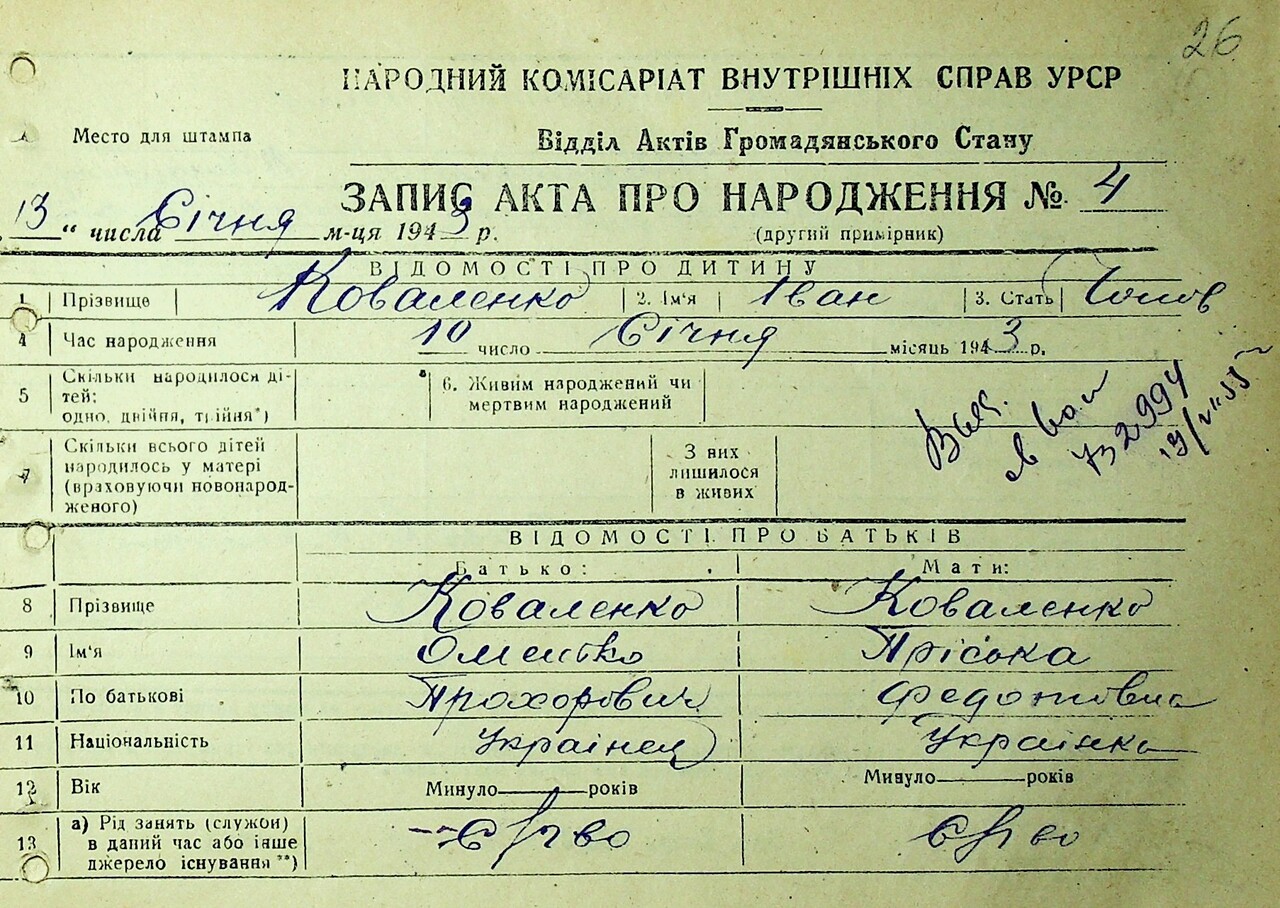 26
НАРОДНИЙ КОМІСАРІАТ ВНУТРІШНІХ СПРАВ УРСР
Место для штампа
Відділ Актів Громадянського Стану
ЗАПИС АКТА ПРО НАРОДЖЕННЯ № 4
13 " числа Січня м-ця 1943 р. (другий примірник)
ВІДОМОСТІ ПРО ДИТИНУ
1 Прізвище Коваленко 2. Ім'я Іван 3. Стать Чолов
4 Час народження 10 число Січня місяць 1943 р.
5 Скільки народилося ді-
тей:
одно, двійня, трійня*)
6. Живим народжений чи
мертвим народжений
7 Скільки всього дітей
народилось у матері
(враховуючи новонарод-
женого)
З них
лишилося
в живих
732994
ВІДОМОСТІ ПРО БАТЬКІВ
Батько: Мати:
8 Прізвище Коваленко Коваленко
9 Ім'я Пріська
10 По батькові Прохорович Федотовна
11 Національність Українец Українка
12 Вік Минуло року років Минуло років
13 а) Рід занять (служби)
в даний час або інше
джерело існування **)